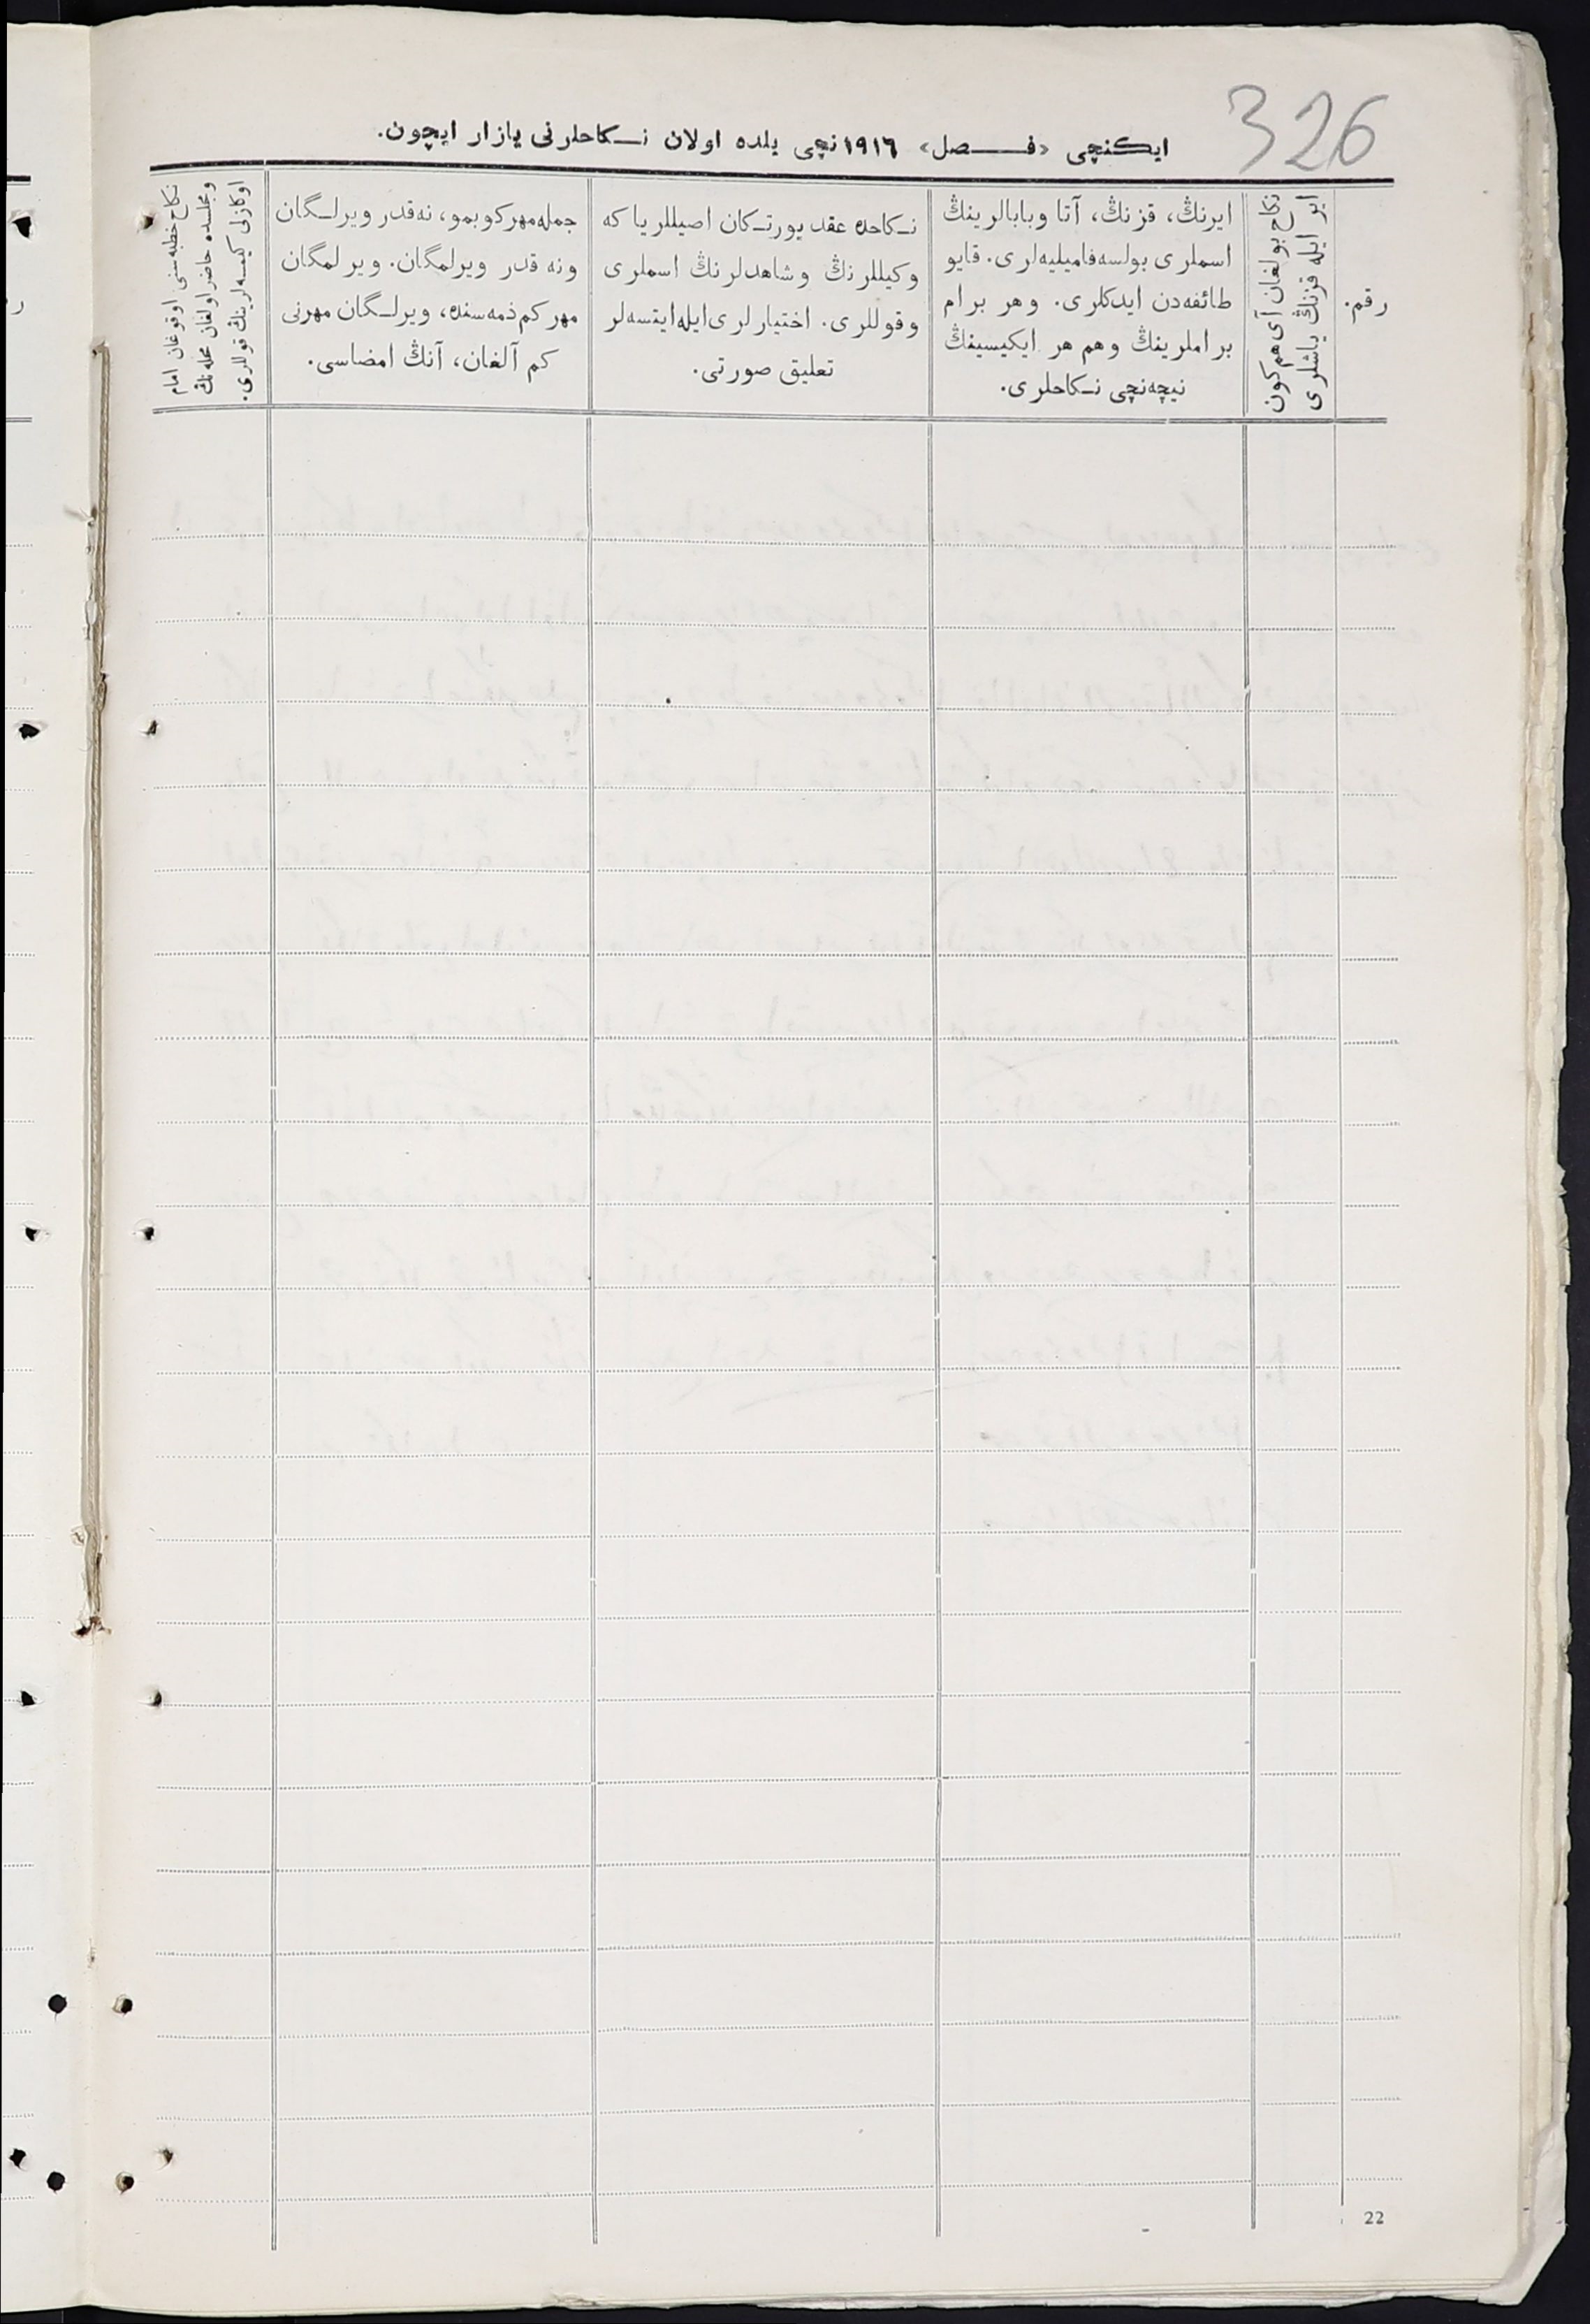 326
ایکنچی «فـــصل» ١٩١٦نچی یلده اولان نـکاحلرنی یازار ایچون.
رقم.
نکاح بولغان آی هم کون
ایر ایله قزنڭ یاشلری
ایرنڭ، قزنڭ، آتا وبابالرینڭ
اسملری بولسه فامیلیه‌لری. قایو
طائفه‌دن ایدکلری. وهر برام
براملرینڭ وهم هر ایکیسینڭ
نیچه‌نچی نـکاحلری.
نـکاحده عقد یورتـکان اصیللر یا که
وکیللرنڭ وشاهدلرنڭ اسملری
وقوللری. اختیارلری ایله ایتسه‌لر
تعلیق صورتی.
جمله مهر کوبمو، نه‌قدر ویرلـگان
ونه قدر ویرلمگان. ویرلمگان
مهر کم ذمه‌سنده، ویرلـگان مهرنی
کم آلغان، آنڭ امضاسی.
نکاح خطبه‌سنی اوقوغان امام
ومجلسده حاضر اولغان محله‌نڭ
اوکازلی کیمسه‌لرینڭ قوللری.
22